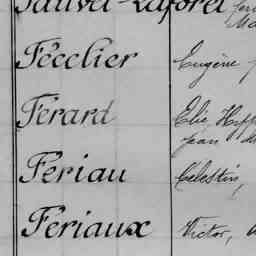 Fauvel-Laforet
Fécelier Eugène
Férard Elie, Hipp
Jean
Feriau Célestin,
Feriaux Victor,